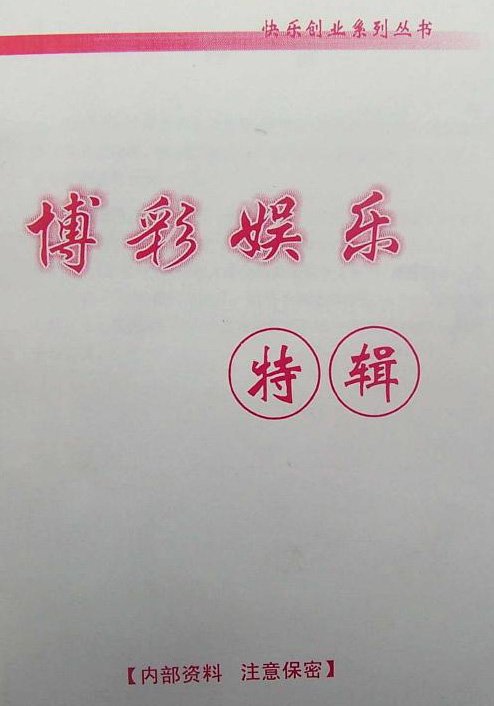 快乐创业系列丛书
博彩娱乐
特辑
【内部资料 注意保密】